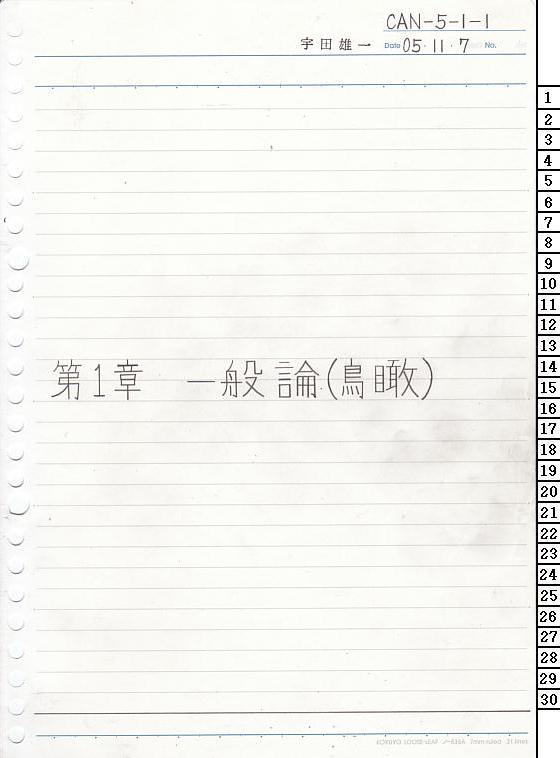 CAN-5-1-1
宇田雄一 Date 05・11・7 No.
第1章 一般論(鳥瞰)
1
2
3
4
5
6
7
8
9
10
11
12
13
14
15
16
17
18
19
20
21
22
23
24
25
26
27
28
29
30
KOKUYO LOOSE-LEAF ノ-836A 7mm ruled 31 lines